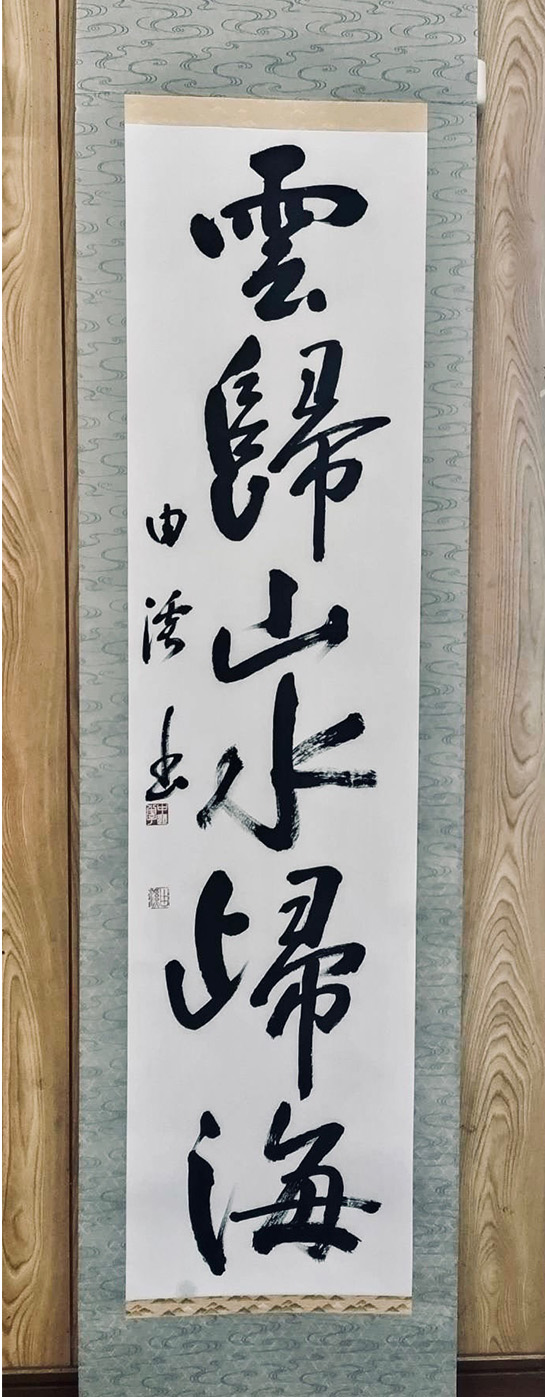 雲歸山水歸海
由渓書